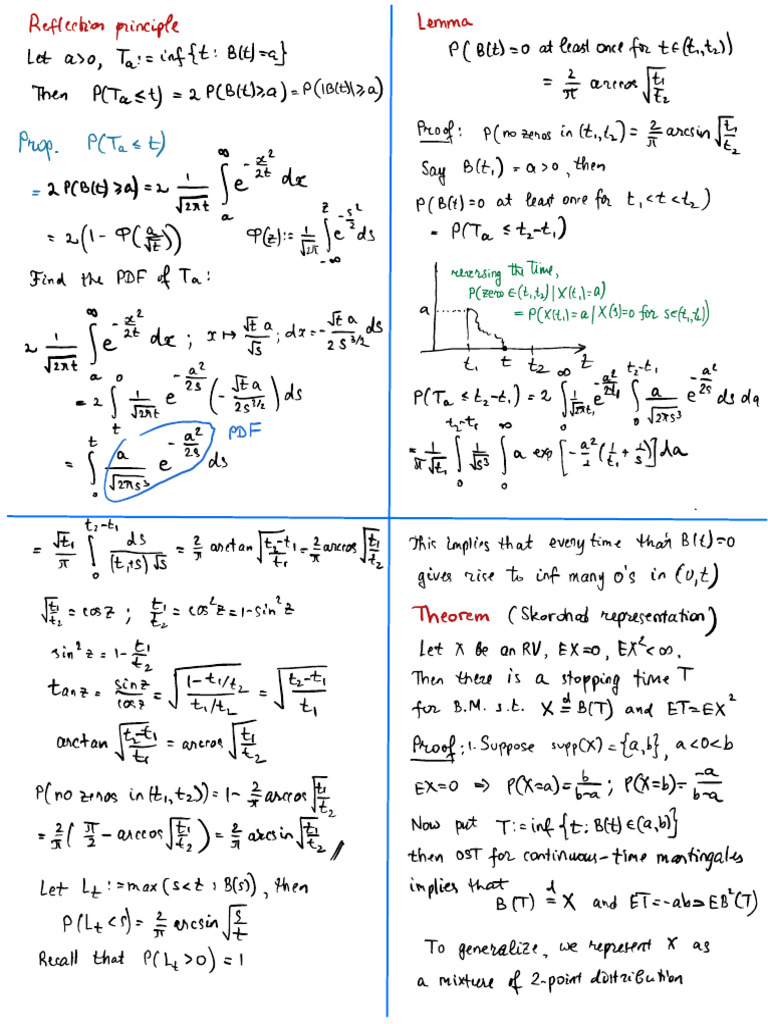 Reflection principle
Let a>0, Tₐ := inf{t : B(t)=a}
Then P(Tₐ ≤ t) = 2 P(B(t)≥a) = P(|B(t)|≥a)
Prop. P(Tₐ ≤ t)
= 2 P(B(t) ≥ a) = 2 1/√(2πt) ∫_a^∞ e^{-x²/2t} dx
= 2(1 - Φ(a/√t)) Φ(z) := 1/√(2π) ∫_{-∞}^z e^{-s²/2} ds
Find the PDF of Tₐ :
2 1/√(2πt) ∫_a^∞ e^{-x²/2t} dx ; x ↦ √t a/√s ; dx = - √t a/(2 s^{3/2}) ds
= 2 ∫_t^0 1/√(2πt) e^{-a²/2s} (- √t a/(2s^{3/2})) ds
= ∫_0^t a/√(2πs³) e^{-a²/2s} ds PDF
Lemma
P(B(t)=0 at least once for t∈(t₁,t₂))
= 2/π arccos √(t₁/t₂)
Proof: P(no zeros in (t₁,t₂) = 2/π arcsin √(t₁/t₂)
Say B(t₁) = a>0, then
P(B(t)=0 at least once for t₁<t<t₂)
= P(Tₐ ≤ t₂-t₁)
reversing the time,
P(zero ∈(t₁,t₂) | X(t₁)=a)
= P(X(t₁)=a | X(s)=0 for s∈(t₁,t₂))
a
t₁ t t₂ t
P(Tₐ ≤ t₂-t₁) = 2 ∫_0^∞ 1/√(2πt₁) e^{-a²/2t₁} ∫_0^{t₂-t₁} a/√(2πs³) e^{-a²/2s} ds da
= 1/(π√t₁) ∫_0^{t₂-t₁} 1/√s³ ∫_0^∞ a exp[-a²/2 (1/t₁ + 1/s)] da
= √t₁/π ∫_0^{t₂-t₁} ds/((t₁+s)√s) = 2/π arctan √((t₂-t₁)/t₁) = 2/π arccos √(t₁/t₂)
√(t₁/t₂) = cos z ; t₁/t₂ = cos² z = 1-sin² z
sin² z = 1- t₁/t₂
tan z = sin z/cos z = √((1-t₁/t₂)/(t₁/t₂)) = √((t₂-t₁)/t₁)
arctan √((t₂-t₁)/t₁) = arccos √(t₁/t₂)
P(no zeros in (t₁,t₂)) = 1- 2/π arccos √(t₁/t₂)
= 2/π (π/2 - arccos √(t₁/t₂)) = 2/π arcsin √(t₁/t₂) //
Let Lₜ := max(s<t : B(s)), then
P(Lₜ <s) = 2/π arcsin √(s/t)
Recall that P(Lₜ >0) = 1
This implies that every time that B(t)=0
gives rise to inf many 0's in (0,t)
Theorem (Skorohod representation)
Let X be an RV, EX=0, EX²<∞.
Then there is a stopping time T
for B.M. s.t. X =ᵈ B(T) and ET=EX²
Proof: 1. Suppose supp(X)={a,b}, a<0<b
EX=0 ⇒ P(X=a)= b/(b-a) ; P(X=b)= -a/(b-a)
Now put T := inf{t : B(t)∈(a,b)}
then OST for continuous-time martingales
implies that
B(T) =ᵈ X and ET=-ab=EB²(T)
To generalize, we represent X as
a mixture of 2-point distribution